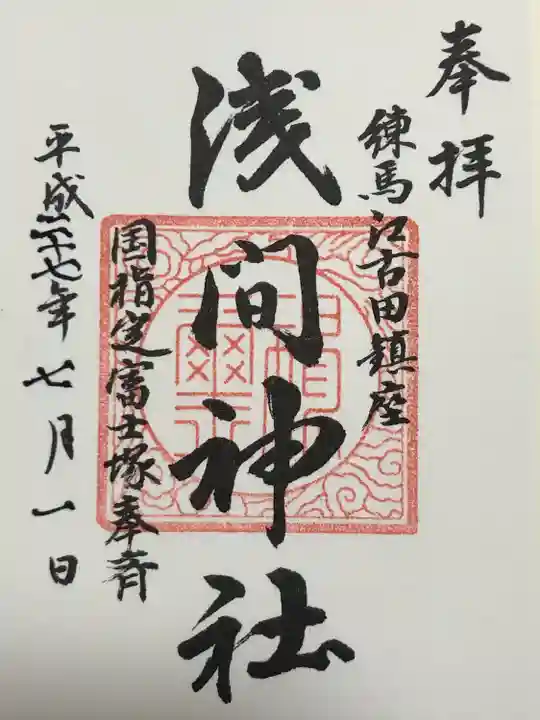 奉拝
練馬江古田鎮座
浅間神社
国指定富士塚奉斉
平成二十七年七月一日